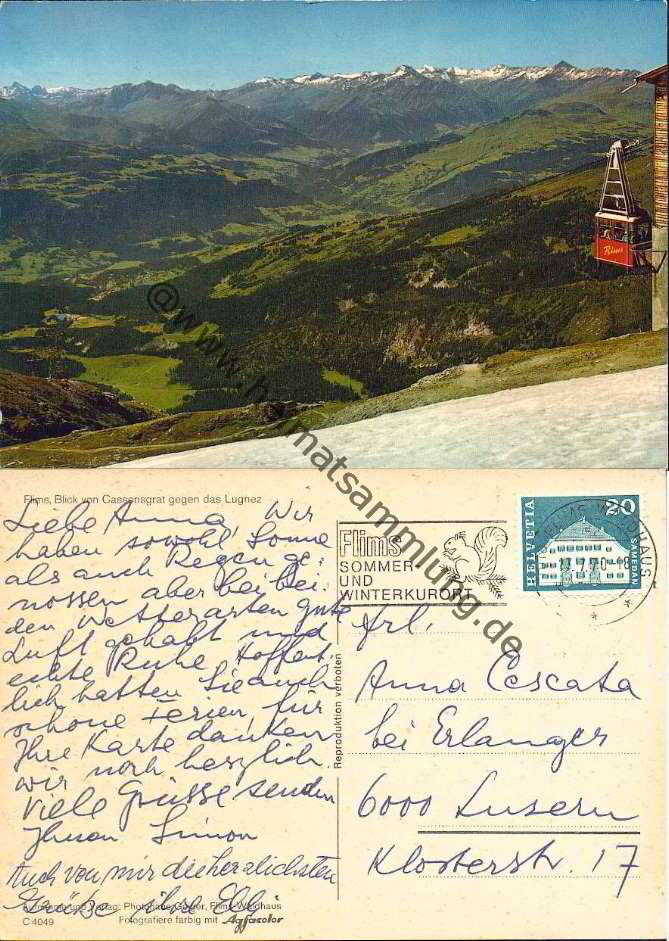 Rims
Flims, Blick von Cassonsgrat gegen das Lugnez
Liebe Anna, Wir
haben sowohl Sonne
als auch Regen ge-
nossen aber bei bei-
den Wetterarten gute
Luft gehabt und
echte Ruhe. Hoffent-
lich hatten Sie auch
schöne Ferien, für
Ihre Karte danken
wir noch herzlich.
Viele Grüsse senden
Ihnen Simon
Auch von mir die herzlichsten
Grüsse Ihre Elli
Photohaus Geiger, Flims-Waldhaus
C 4049
Fotografiere farbig mit Agfacolor
Reproduktion verboten
Flims
SOMMER-
UND
WINTERKURORT
HELVETIA
20
SAMEDAN
FLIMS WALDHAUS
13.7.70-18
Frl.
Anna Cescata
bei Erlanger
6000 Luzern
Klosterstr. 17
@www.heimatsammlung.de